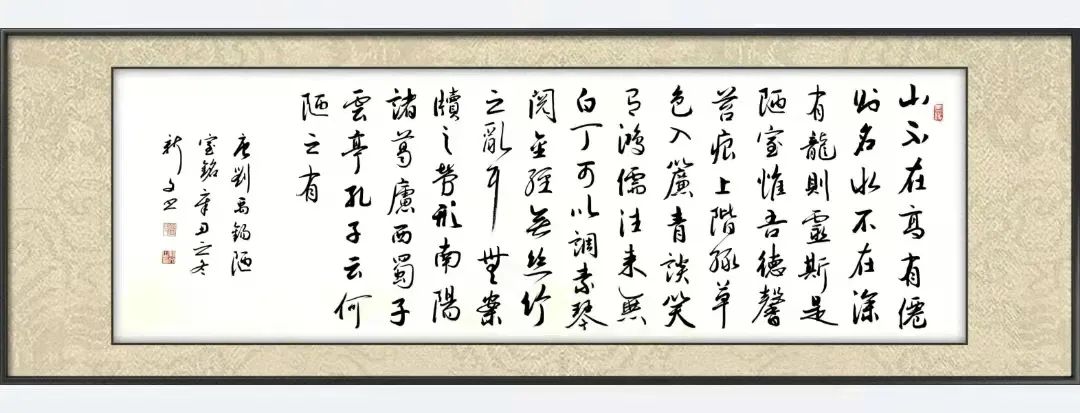 山不在高有僊
则名水不在深
有龍則靈斯是
陋室惟吾德馨
苔痕上階綠草
色入簾青談笑
有鴻儒往来無
白丁可以調素琴
閱金經無絲竹
之亂耳無案
牘之勞形南陽
諸葛廬西蜀子
雲亭孔子云何
陋之有
唐劉禹錫陋
室銘辛丑之冬
新文书